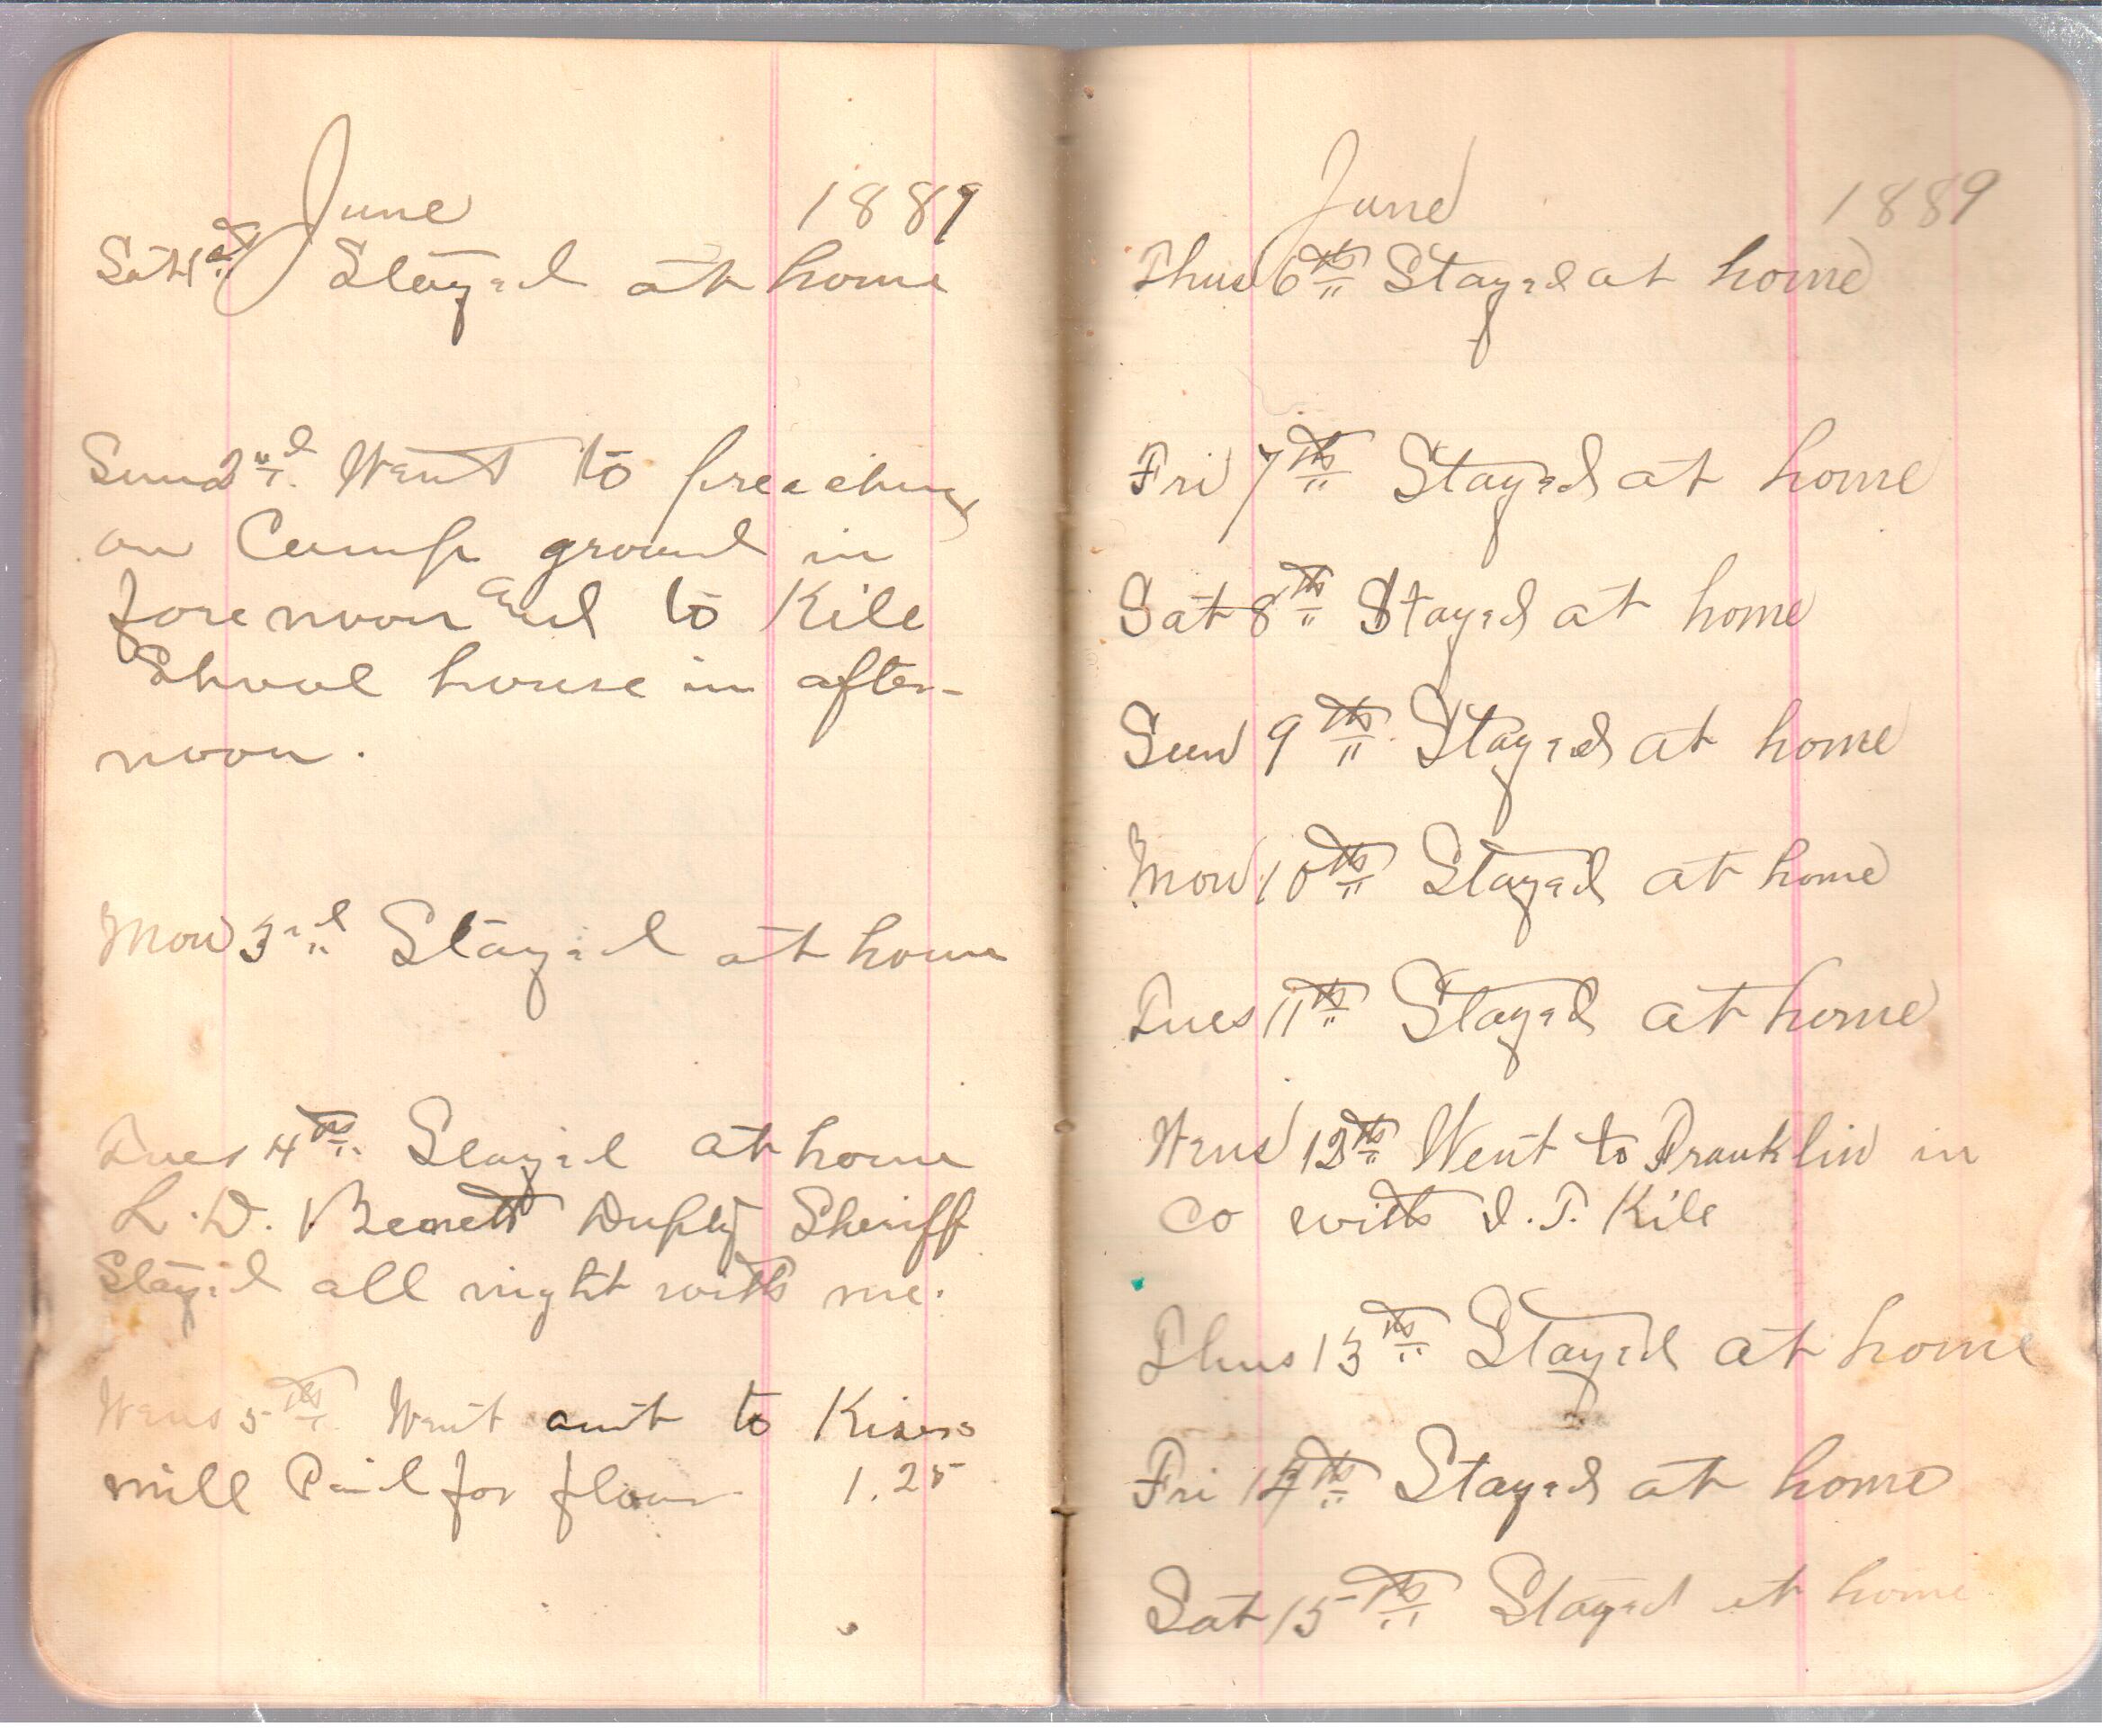 June 1889
Sat 1st Stayed at home
Sund 2nd. Went to preaching
on Camp ground in
forenoon and to Kile
School house in after-
noon.
Mon 3rd Stayed at home
Tues 4th. Stayed at home
L. D. Bennett Duptty Sheriff
Stayed all night with me.
Wens 5th. Went out to Kisers
mill Paid for flour 1.25
June 1889
Thus 6th Stayed at home
Fri 7th Stayed at home
Sat 8th Stayed at home
Sun 9th Stayed at home
Mon 10th Stayed at home
Tues 11th Stayed at home
Wens 12th Went to Franklin in
Co with I. T. Kile
Thus 13th Stayed at home
Fri 14th Stayed at home
Sat 15th Stayed at home